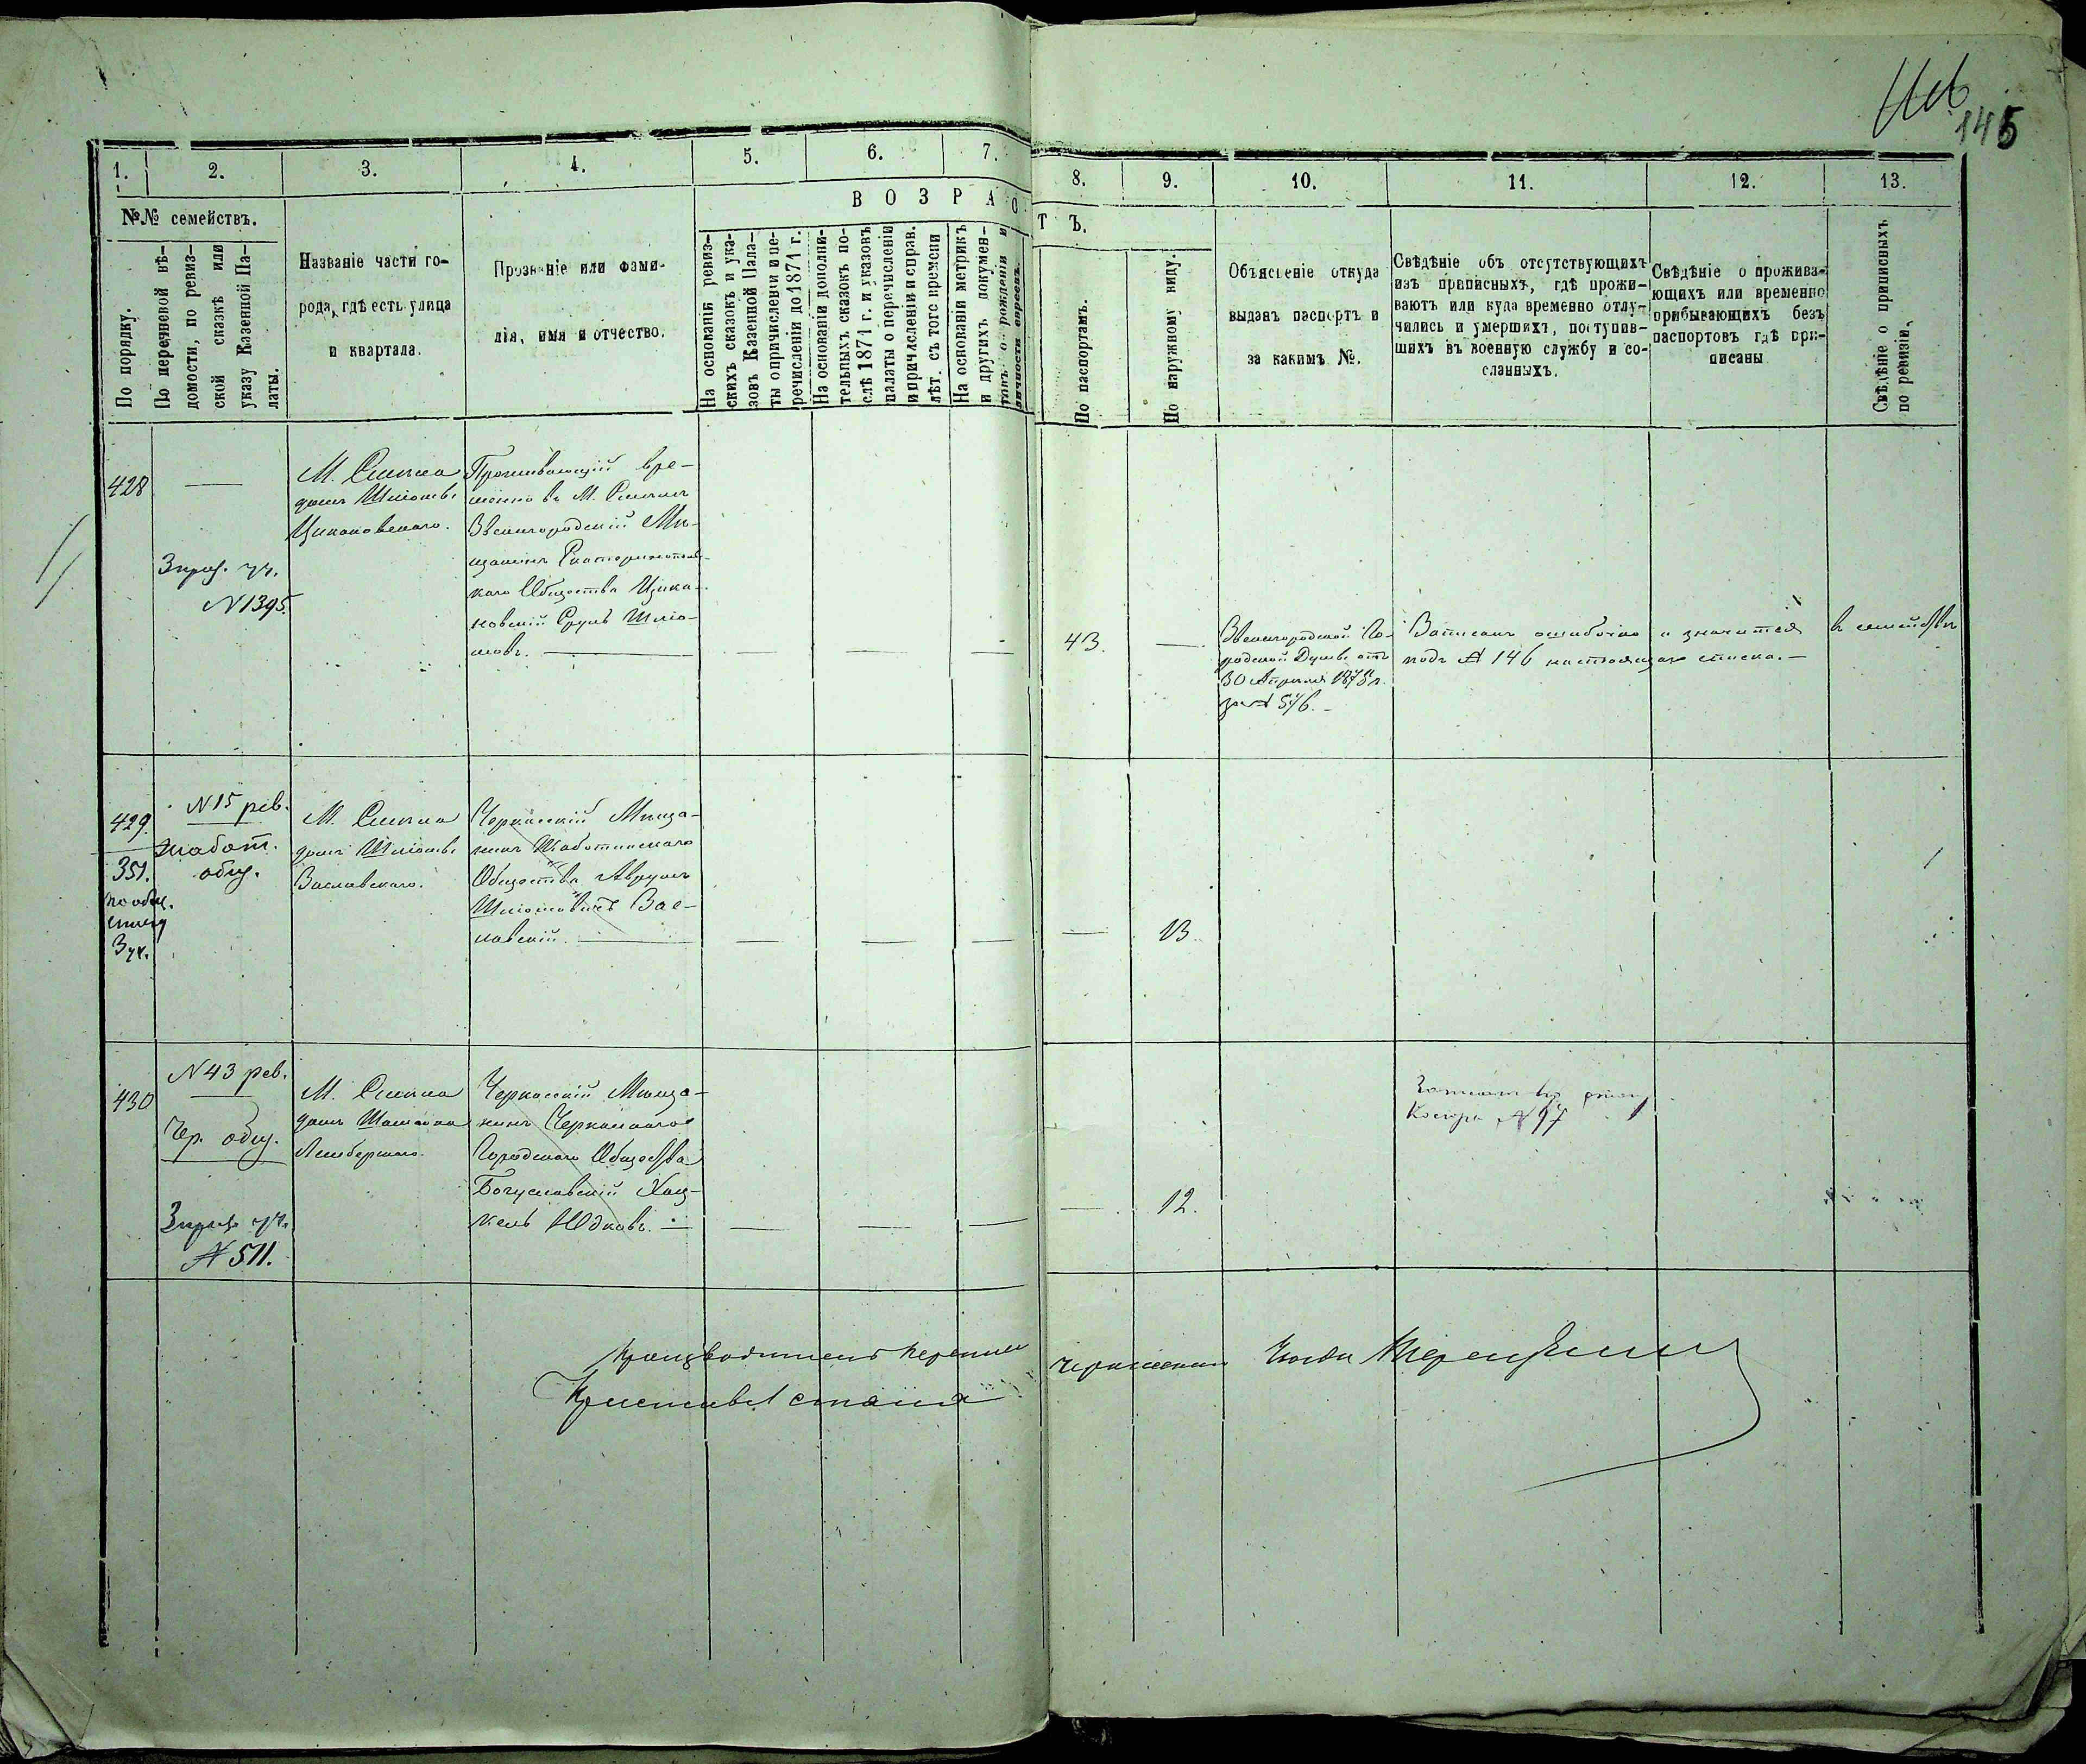 145
1.
2.
3.
4.
5.
6.
7.
8.
9.
10.
11.
12.
13.
№№ семействъ.
По порядку.
По перечневой вѣ-
домости, по ревиз-
ской сказкѣ или
указу Казенной Па-
латы.
Названіе части го-
рода, гдѣ есть улица
и квартала.
Прозваніе или фами-
лія, имя и отчество.
ВОЗРАС
ТЪ.
На основаніи ревиз-
скихъ сказокъ и ука-
зовъ Казенной Пала-
ты о причисленіи и пе-
речисленіи до 1871 г.
На основаніи дополни-
тельныхъ сказокъ по-
слѣ 1871 г. и указовъ
палаты о перечисленіи
и причисленіи и справ.
лѣт. съ того времени
На основаніи метрикъ
и другихъ докумен-
товъ о рожденіи и
По паспортамъ.
По наружному виду.
Объясненіе откуда
выданъ паспортъ и
за какимъ №.
Свѣдѣніе объ отсутствующихъ
изъ приписныхъ, гдѣ прожи-
ваютъ или куда временно отлу-
чились и умершихъ, поступив-
шихъ въ военную службу и со-
сланныхъ.
Свѣдѣніе о прожива-
ющихъ или временно
прибывающихъ безъ
паспортовъ гдѣ при-
писаны
Свѣдѣніе о приписныхъ
по ревизіи.
428
3 приз. уч.
№ 1395.
М. Смѣла
домъ Шліомы
Цикановскаго.
Проживающій вре-
менно въ М. Смѣлѣ
Звенигородскій Мѣ-
щанинъ Екатеринопольс-
каго Общества Цика-
новскій Сруль Шліо-
мовъ.
43.
Звенигородской Го-
родской Думы отъ
30 Апрѣля 1875 г.
за № 546.
Записанъ ошибочно и значится въ семействѣ
подъ № 146 настоящаго списка.
429.
351.
по общ.
списку
3 уч.
№ 15 рев.
Жабот.
общ.
М. Смѣла
домъ Шліомы
Заславскаго.
Черкасскій Мѣща-
нинъ Жаботинскаго
Общества Аврумъ
Шліомовичъ Зас-
лавскій.
13
430
№ 43 рев.
Чер. общ.
3 приз. уч.
№ 511.
М. Смѣла
домъ
Лембергскаго.
Черкасскій Мѣща-
нинъ Черкасскаго
Городскаго Общества
Богуславскій Хац-
кель Юдковъ.
12.
№ 97
Производитель переписи
Приставъ 1 стана
Черкасскаго